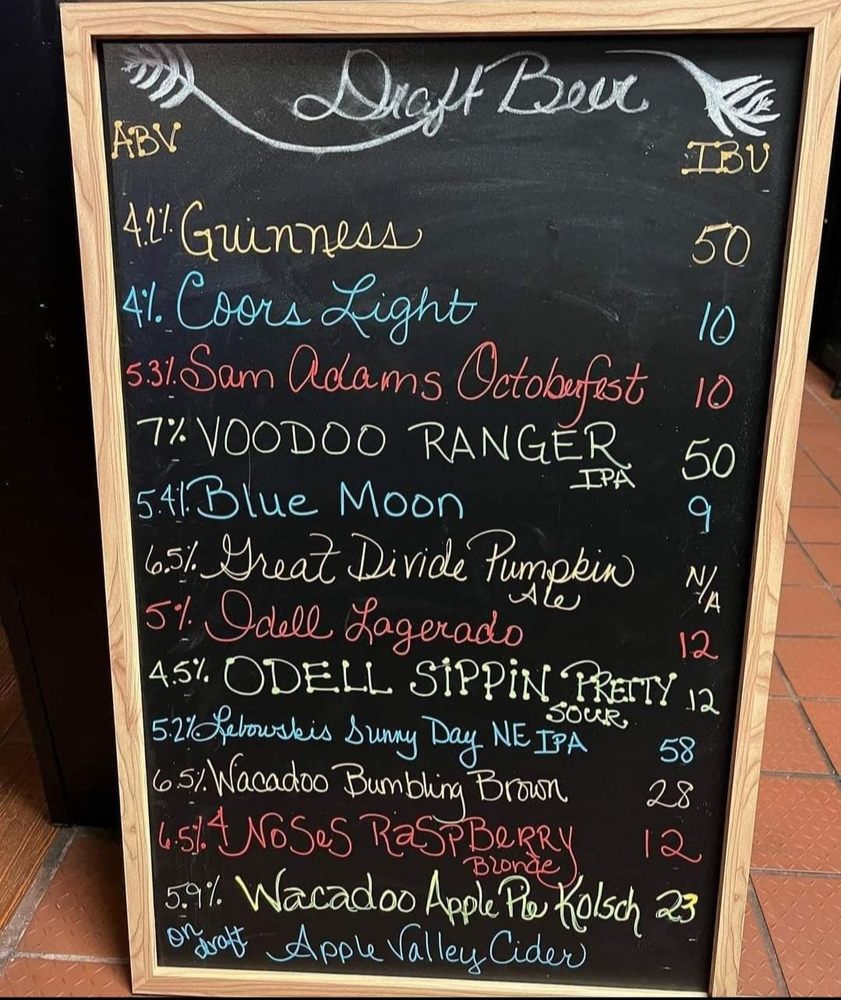 Draft Beer
ABV IBU
4.2% Guinness 50
4% Coors Light 10
5.3% Sam Adams Octoberfest 10
7% VOODOO RANGER 50
IPA
5.4% Blue Moon 9
6.5% Great Divide Pumpkin N/A
Ale
5% Odell Lagerado 12
4.5% ODELL SiPPiN PRETTY 12
SOUR
5.2% Lebowskis Sunny Day NE IPA 58
6.5% Wacadoo Bumbling Brown 28
6.5% 4 NoSeS RaSpBeRRY 12
Blonde
5.9% Wacadoo Apple Pie Kolsch 23
on draft Apple Valley Cider